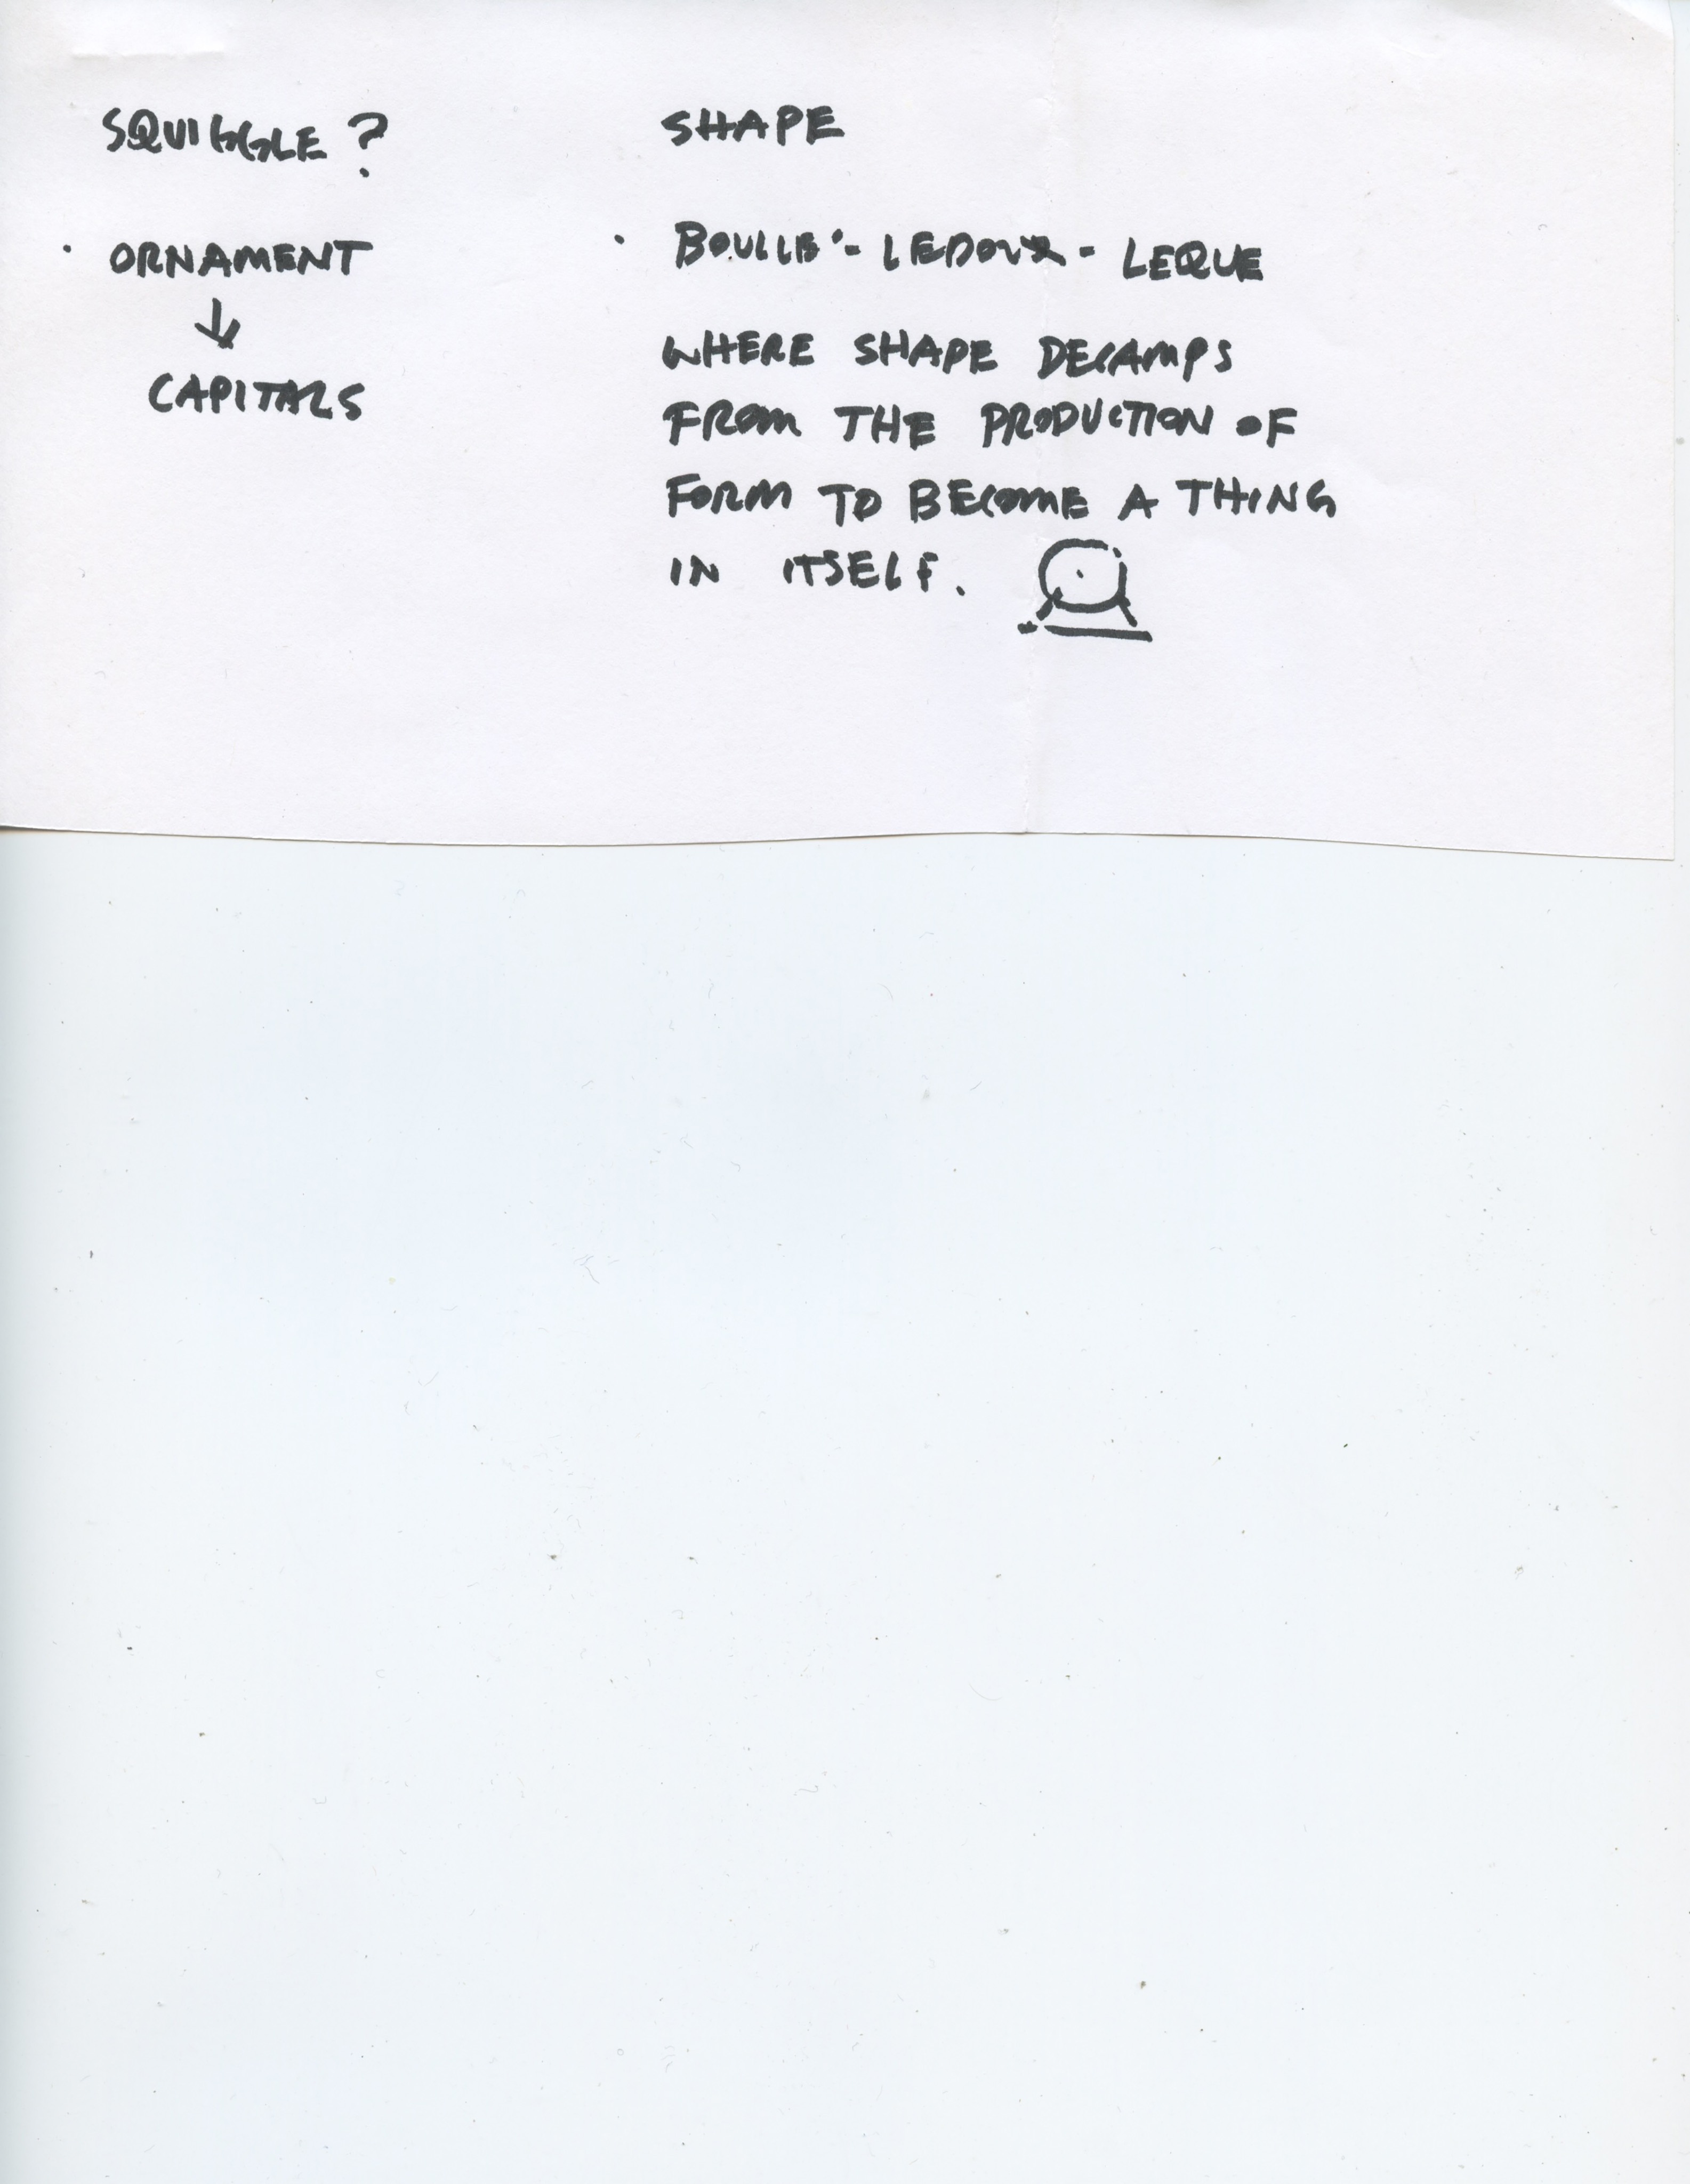 SQUIGGLE?
· ORNAMENT
↓
CAPITALS
SHAPE
· BOULLE'- LEDOUX - LEQUE
WHERE SHAPE DECAMPS
FROM THE PRODUCTION OF
FORM TO BECOME A THING
IN ITSELF.